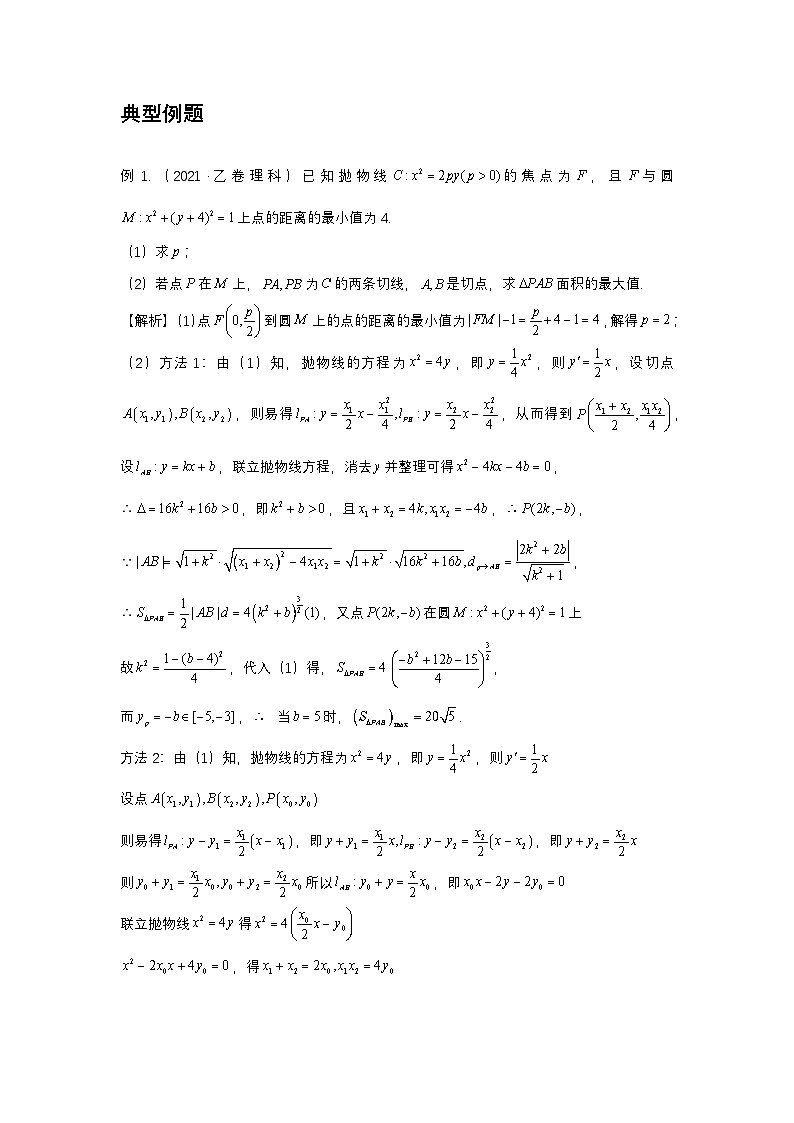 典型例题
例 1.（2021·乙卷理科）已知抛物线 $C: x^2 = 2py(p > 0)$ 的焦点为 $F$，且 $F$ 与圆
$M: x^2 + (y+4)^2 = 1$ 上点的距离的最小值为 4.
（1）求 $p$；
（2）若点 $P$ 在 $M$ 上，$PA, PB$ 为 $C$ 的两条切线，$A, B$ 是切点，求 $\Delta PAB$ 面积的最大值.
【解析】(1)点 $F\left(0, \frac{p}{2}\right)$ 到圆 $M$ 上的点的距离的最小值为 $|FM| - 1 = \frac{p}{2} + 4 - 1 = 4$，解得 $p = 2$；
（2）方法 1：由（1）知，抛物线的方程为 $x^2 = 4y$，即 $y = \frac{1}{4}x^2$，则 $y' = \frac{1}{2}x$，设切点
$A(x_1, y_1), B(x_2, y_2)$，则易得 $l_{PA}: y = \frac{x_1}{2}x - \frac{x_1^2}{4}, l_{PB}: y = \frac{x_2}{2}x - \frac{x_2^2}{4}$，从而得到 $P\left(\frac{x_1 + x_2}{2}, \frac{x_1 x_2}{4}\right)$，
设 $l_{AB}: y = kx + b$，联立抛物线方程，消去 $y$ 并整理可得 $x^2 - 4kx - 4b = 0$，
∴ $\Delta = 16k^2 + 16b > 0$，即 $k^2 + b > 0$，且 $x_1 + x_2 = 4k, x_1 x_2 = -4b$，∴ $P(2k, -b)$，
∵ $|AB| = \sqrt{1 + k^2} \cdot \sqrt{(x_1 + x_2)^2 - 4x_1 x_2} = \sqrt{1 + k^2} \cdot \sqrt{16k^2 + 16b}, d_{p \to AB} = \frac{|2k^2 + 2b|}{\sqrt{k^2 + 1}}$，
∴ $S_{\Delta PAB} = \frac{1}{2}|AB|d = 4(k^2 + b)^{\frac{3}{2}}(1)$，又点 $P(2k, -b)$ 在圆 $M: x^2 + (y+4)^2 = 1$ 上
故 $k^2 = \frac{1 - (b-4)^2}{4}$，代入（1）得，$S_{\Delta PAB} = 4\left(\frac{-b^2 + 12b - 15}{4}\right)^{\frac{3}{2}}$，
而 $y_p = -b \in [-5, -3]$，∴ 当 $b = 5$ 时，$(S_{\Delta PAB})_{max} = 20\sqrt{5}$.
方法 2：由（1）知，抛物线的方程为 $x^2 = 4y$，即 $y = \frac{1}{4}x^2$，则 $y' = \frac{1}{2}x$
设点 $A(x_1, y_1), B(x_2, y_2), P(x_0, y_0)$
则易得 $l_{PA}: y - y_1 = \frac{x_1}{2}(x - x_1)$，即 $y + y_1 = \frac{x_1}{2}x, l_{PB}: y - y_2 = \frac{x_2}{2}(x - x_2)$，即 $y + y_2 = \frac{x_2}{2}x$
则 $y_0 + y_1 = \frac{x_1}{2}x_0, y_0 + y_2 = \frac{x_2}{2}x_0$ 所以 $l_{AB}: y_0 + y = \frac{x}{2}x_0$，即 $x_0 x - 2y - 2y_0 = 0$
联立抛物线 $x^2 = 4y$ 得 $x^2 = 4\left(\frac{x_0}{2}x - y_0\right)$
$x^2 - 2x_0 x + 4y_0 = 0$，得 $x_1 + x_2 = 2x_0, x_1 x_2 = 4y_0$